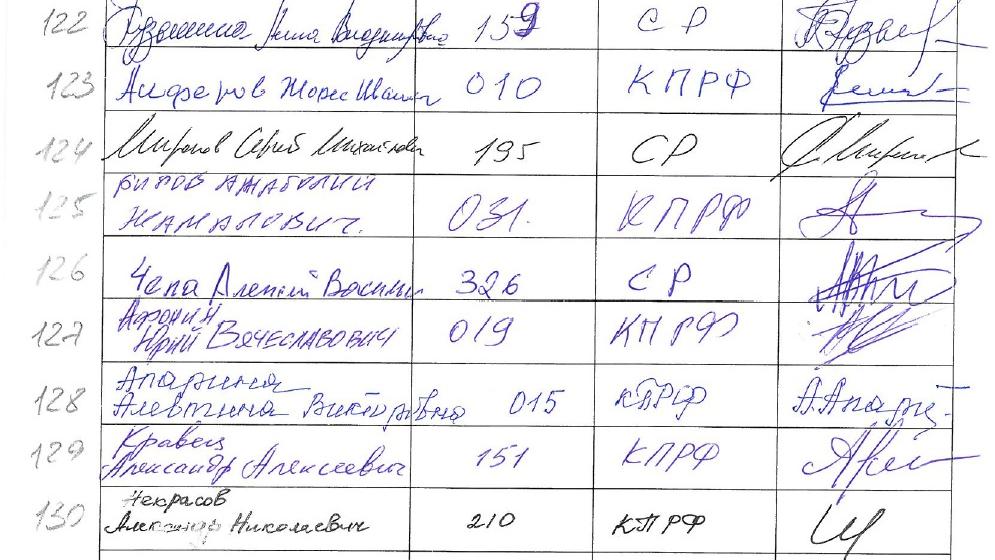 122 Кузьмина Алла Владимировна 159 СР
123 Алферов Жорес Иванович 010 КПРФ
124 Миронов Сергей Михайлович 195 СР С. Миронов
125 БИФОВ АНАТОЛИЙ
ЖАМАЛОВИЧ. 031. КПРФ
126 Чепа Алексей Васильевич 326 СР
127 Афонин
Юрий Вячеславович 019 КПРФ
128 Апарина
Алевтина Викторовна 015 КПРФ А.Апарин
129 Кравец
Александр Алексеевич 151 КПРФ
130 Некрасов
Александр Николаевич 210 КПРФ